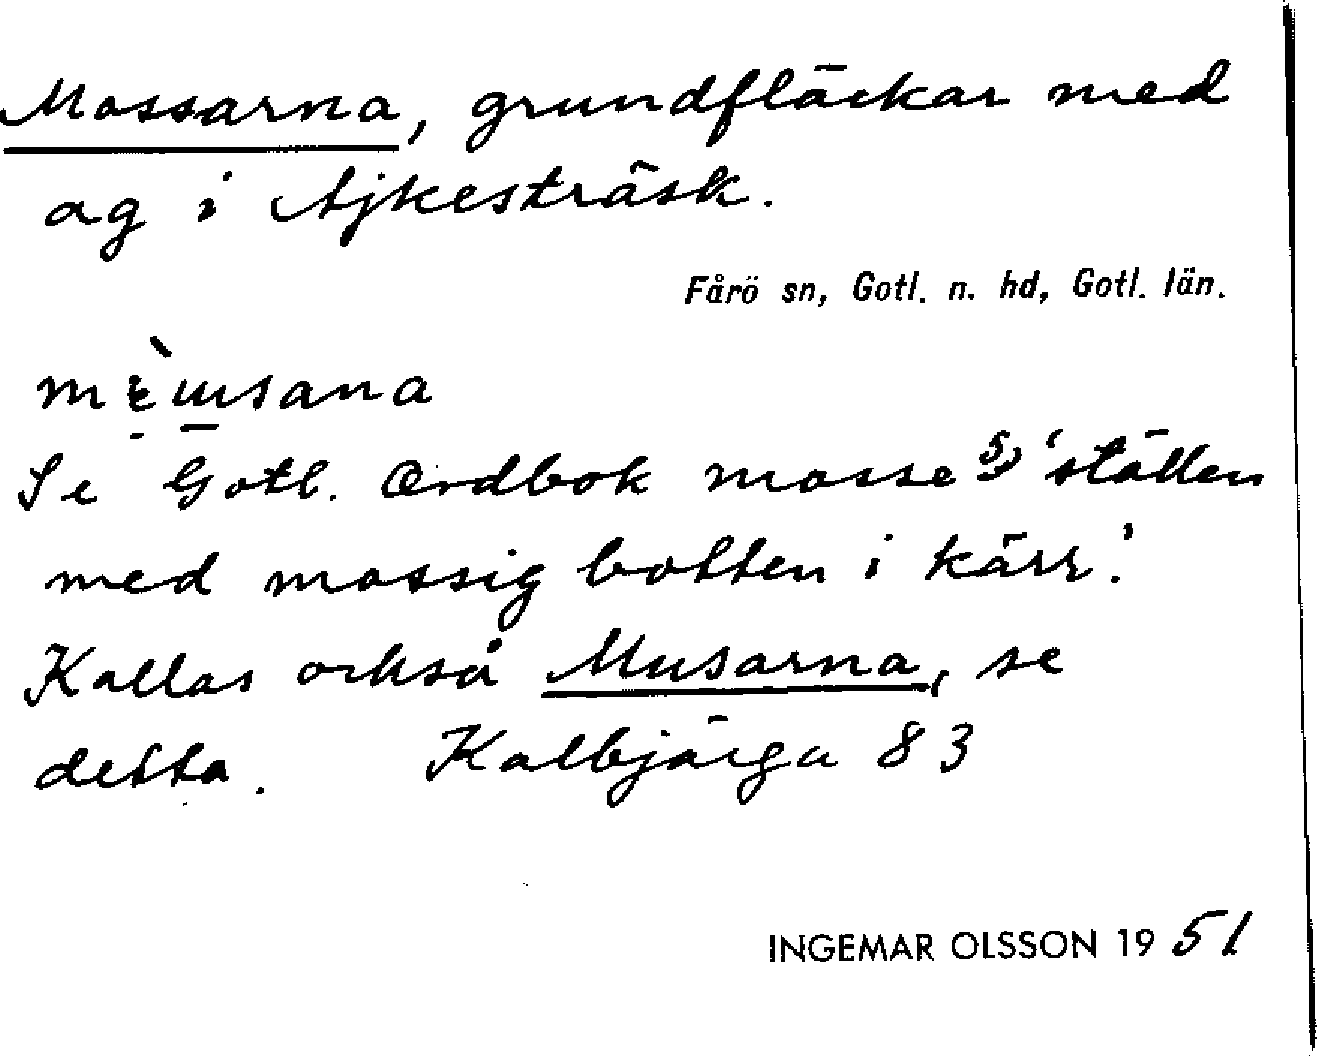 Mossarna, grundfläckar med
ag i Ajkesträsk.
Fårö sn, Gotl. n. hd, Gotl. län.
Se Gotl. Ordbok mosse 5) 'ställen
med mossig botten i kärr.'
Kallas också Musarna, se
detta. Kalbjärga 83
INGEMAR OLSSON 1951